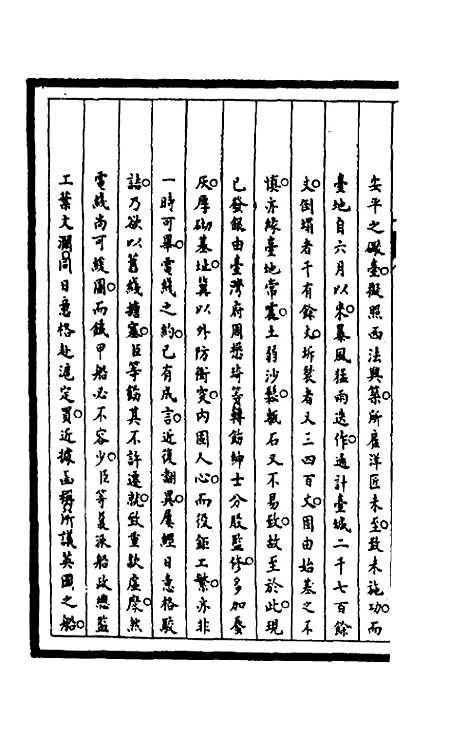 安平之礮臺擬照西法興築所雇洋匠未至致未施功而
臺地自六月以來暴風猛雨迭作通計臺城二千七百餘
丈倒塌者千有餘丈坼裂者又三四百丈固由始基之不
慎亦緣臺地常震土弱沙鬆甎石又不易致故至於此現
已發銀由臺灣府周懋琦等轉飭紳士分段監修多加蜃
灰厚砌基址冀以外防衝突內固人心而役鉅工繁亦非
一時可畢電綫之約已有成言近復翻異屢經日意格駁
詰乃欲以舊綫搪塞臣等飭其不許遷就致重款虛糜然
電綫尚可緩圖而鐵甲船必不容少臣等爰派船政總監
工葉文瀾同日意格赴滬定買近據函稱所議英國之船